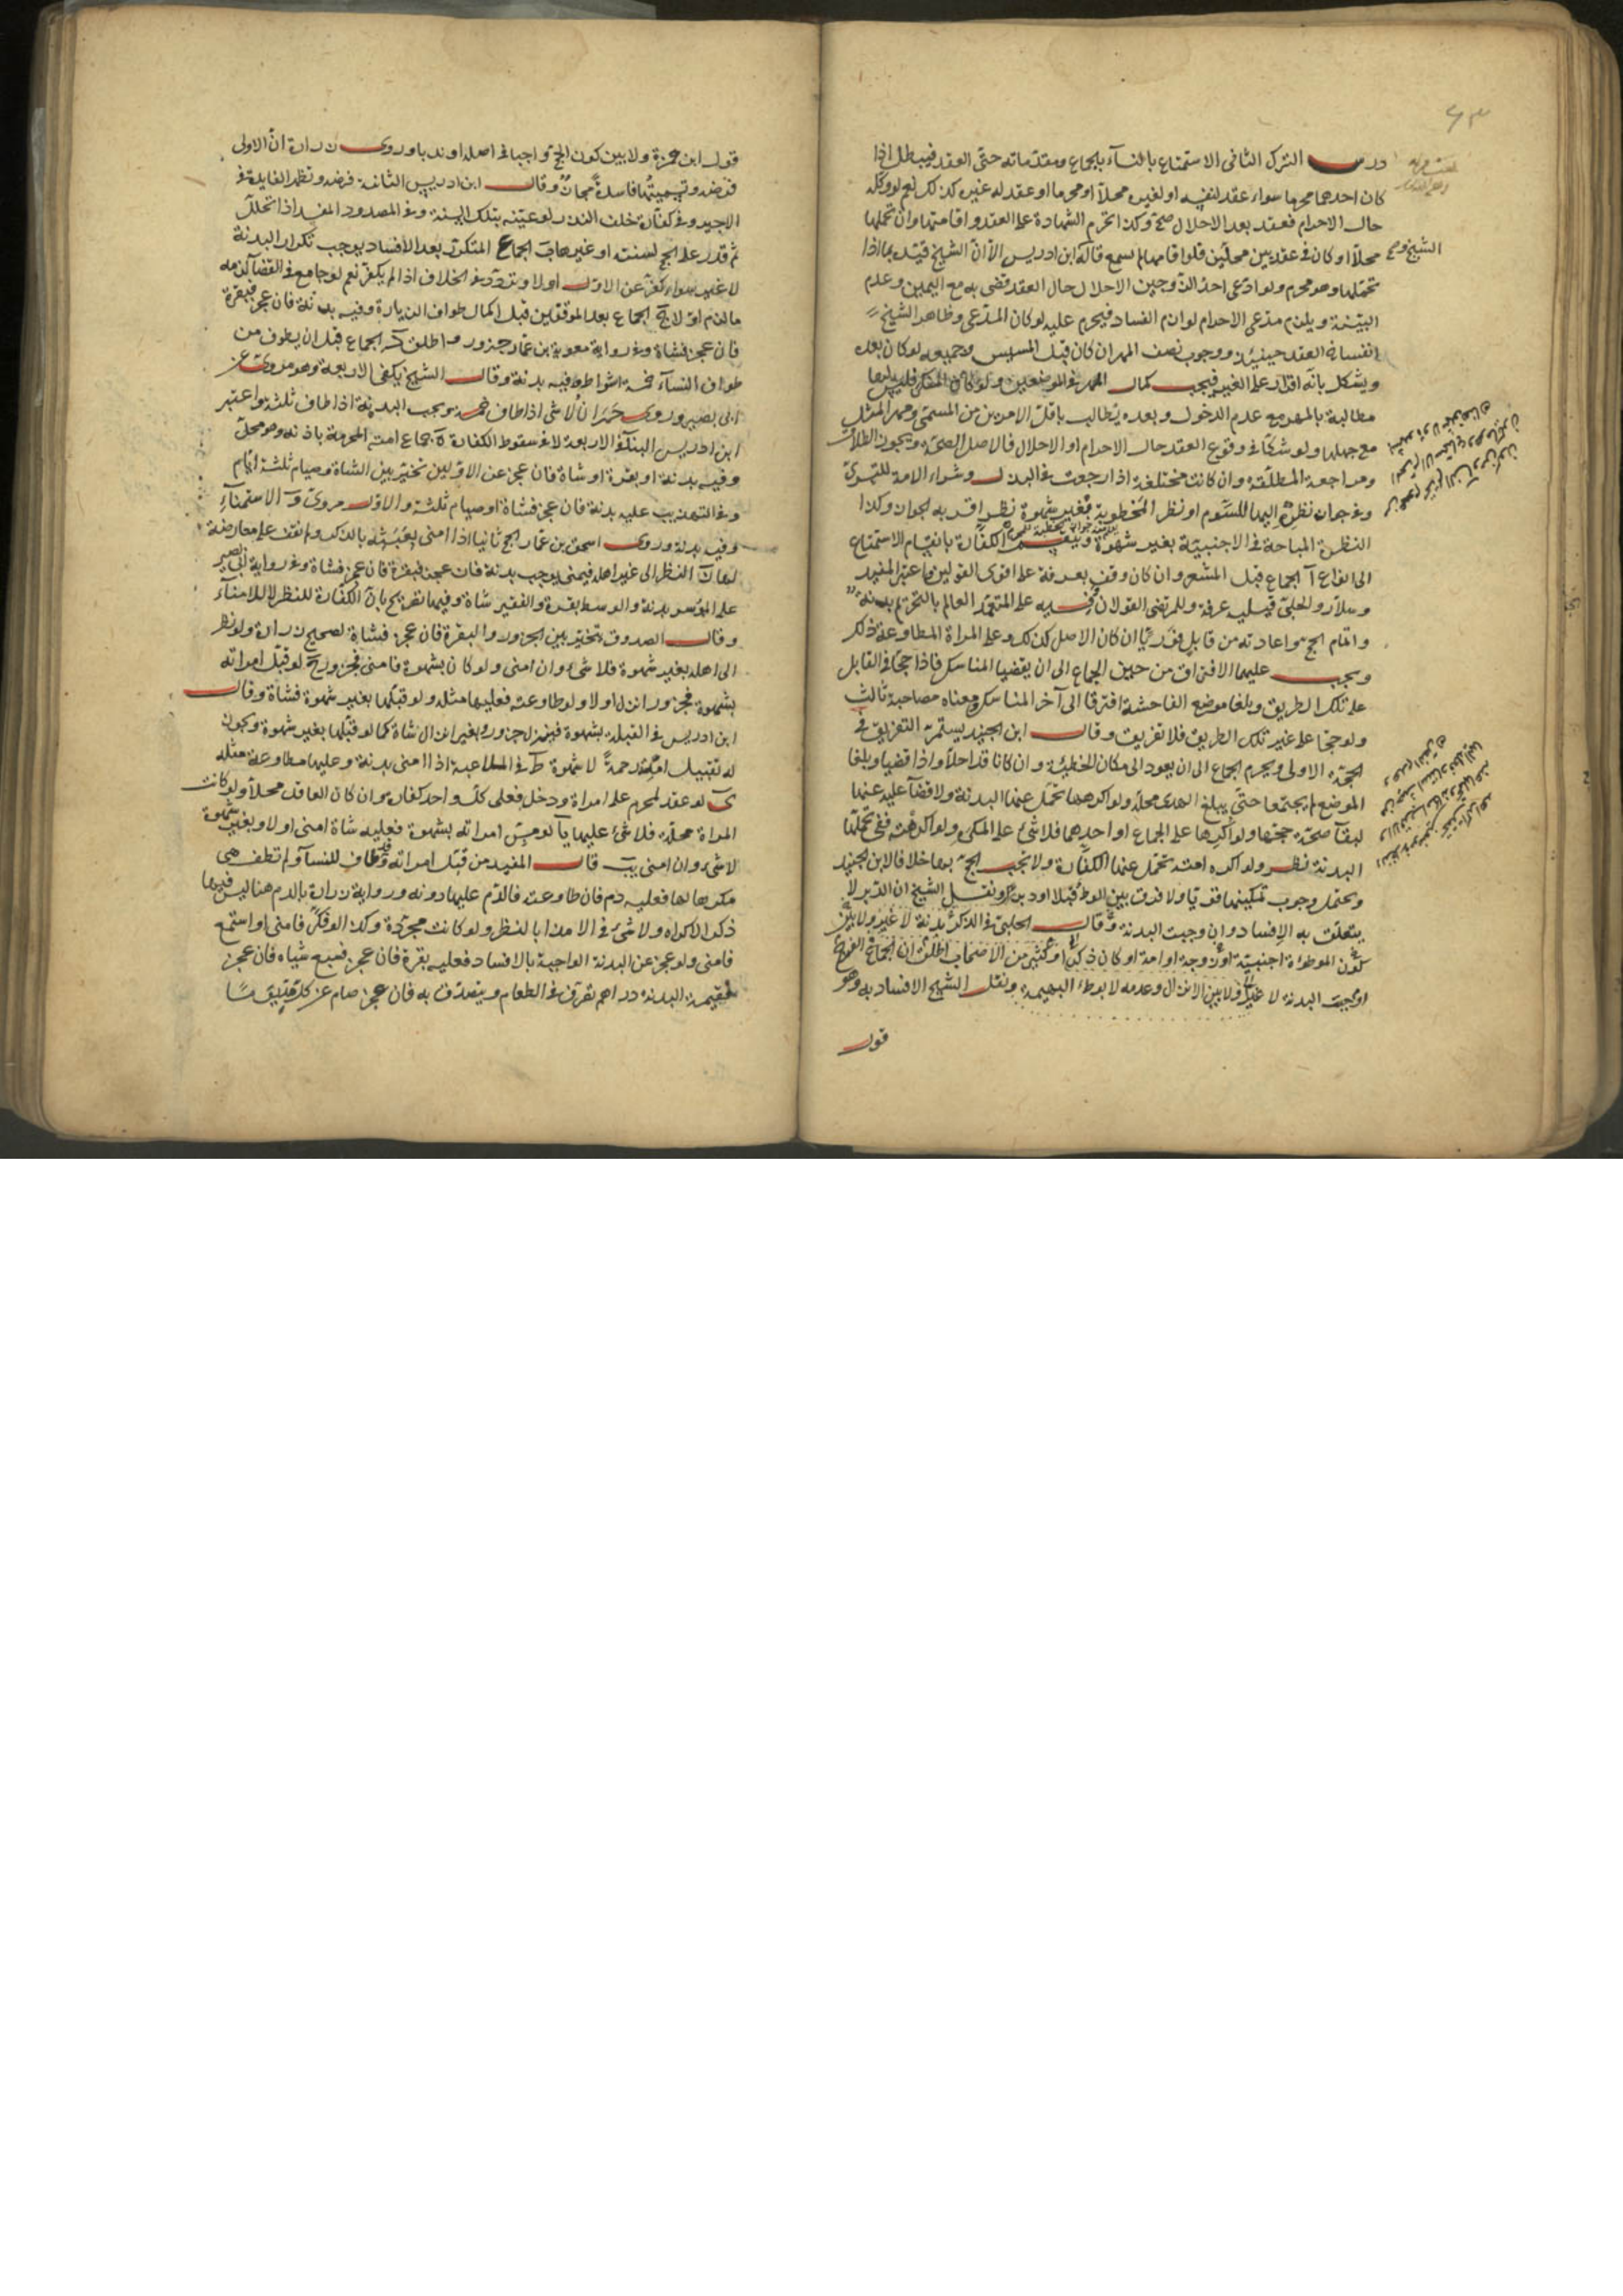 درس الترك الثانى الاستمتاع بالنسآء بالجماع ومقدماته حتى العقد فيبطل اذا
كان احدهما محرما سواء عقد لنفسه او لغيره محلا او محرما او عقد له غيره كذلك نعم لو وكله
حال الاحرام فعقد بعد الاحلال صح وكذا تحرم الشهادة على العقد واقامتها وان تحملها
محلا او كان فى عقد بين محلين فلو اقامها لم تسمع قاله ابن ادريس الا ان الشيخ قيده بما اذا
تحملها وهو محرم ولو ادعى احد الزوجين الاحلال حال العقد قضى به مع اليمين وعدم
البينة ويلزم مدعى الاحرام لوازم الفساد فيحرم عليه لو كان المدعى وظاهر الشيخ
انفساخ العقد حينئذ ووجوب نصف المهر ان كان قبل المسيس وجميعه لو كان بعده
ويشكل بانه اقرار على الغير فيجب كمال المهر فى الموضعين ولو كان المنكر فليس لها
مطالبة بالمهر مع عدم الدخول وبعده يطالب باقل الامرين من المسمى ومهر المثل
مع جهلها ولو شكا فى وقوع العقد حال الاحرام او الاحلال فالاصل الصحة ويجوز الطلاق
ومراجعة المطلقة وان كانت مختلعة اذا رجعت فى البذل وشراء الامة للتسرى
وفى جواز نظره اليها للسوم او نظر المخطوبة بغير شهوة نظر اقربه الجواز وكذا
النظرة المباحة فى الاجنبية بغير شهوة الكفارة بانقسام الاستمتاع
الى انواع آ الجماع قبل المشعر وان كان وقف بعرفة على اقوى القولين وما عبر المفيد
وسلار والحلبى قبل عرفة وللمرتضى القولان ففيه على المتعمد العالم بالتحريم بدنة
واتمام الحج واعادته من قابل فوريا ان كان الاصل كذلك وعلى المراة المطاوعة ذلك
ويجب عليهما الافتراق من حين الجماع الى ان يقضيا المناسك فاذا حجا فى القابل
على تلك الطريق وبلغا موضع الفاحشة افترقا الى آخر المناسك ومعناه مصاحبة ثالث
ولو حجا على غير تلك الطريق فلا تفريق وقال ابن الجنيد يستمر التفريق فى
الحجة الاولى ويحرم الجماع الى ان يعود الى مكان الخطيئة وان كانا قد احلا واذا قضيا وبلغا
الموضع لم يجتمعا حتى يبلغ الهدى محله ولو اكرهها تحمل عنها البدنة ولا قضآ عليه عنها
لبقآ صحة حجتها ولو اكرهها على الجماع او احدهما فلا شئ على المكره ولو اكرهته ففى تحملها
البدنة نظر ولو اكره امته تحمل عنها الكفارة ولا يجب الحج بها خلافا لابن الجنيد
ويحتمل وجوب تمكينها فقويا ولا فرق بين الوطء قبلا او دبرا ونقل الشيخ ان الدبر لا
يتعلق به الافساد وان وجبت البدنة وقال الحلبى فى الذكر بدنة لا غير ولا بين
كون الموطوءة اجنبية او زوجة او امة او كان ذكرا وكثير من الاصحاب اطلق ان الجماع فى الفرج
اوجبت البدنة لا غير ولا بين الانزال وعدمه لا بوطء البهيمة ونقل الشيخ الافساد به وهو
قول
قول ابن حمزة ولا بين كون الحج واجبا فى اصله او ندبا وروى زرارة ان الاولى
فرضه وتسميتها فاسدة مجاز وقال ابن ادريس الثانية فرضه وتظهر الفايدة فى
الاجير وفى كفارة خلف النذر لو عينه بتلك السنة وفى المصدود المفسد اذا تحلل
ثم قدر على الحج لسنته او غيرها ب الجماع المتكرر بعد الافساد يوجب تكرار البدنة
لا غير سواء كفر عن الاول او لا وتردد فى الخلاف اذا لم يكفر نعم لو جامع فى القضآ لزمه
ما لزم اولا ج الجماع بعد الموقفين قبل اكمال طواف الزيارة وفيه بدنة فان عجز فبقرة
فان عجز فشاة وفى رواية معوية بن عمار جزور واطلق د الجماع قبل ان يطوف من
طواف النسآء خمسة اشواط وفيه بدنة وقال الشيخ يكفى الاربعة وهو مروى عن
ابى بصير وروى حمران لا شئ اذا طاف خمسة ويجب البدنة اذا طاف ثلثة واعتبر
ابن ادريس البنآء فى الاربعة لا فى سقوط الكفارة ه جماع امته المحرمة باذنه وهو محل
وفيه بدنة او بقرة او شاة فان عجز عن الاولين تخير بين الشاة وصيام ثلثة ايام
وفى التهذيب عليه بدنة فان عجز فشاة او صيام ثلثة والاول مروى و الاستمنآء
وفيه بدنة وروى اسحق بن عمار الحج ثانيا اذا امنى بعبثه بالذكر ولم نقف على معارضة
لها ز النظر الى غير اهله فيمنى يوجب بدنة فان عجز فبقرة فان عجز فشاة وفى رواية ابى بصير
على الموسر بدنة والوسط بقرة والفقير شاة وفيها تصريح بان الكفارة للنظر لا للامنآء
وقال الصدوق يتخير بين الجزور والبقرة فان عجز فشاة لصحيح زرارة ولو نظر
الى اهله بغير شهوة فلا شئ وان امنى ولو كان بشهوة فامنى فجزور ح لو قبل امراته
بشهوة فجزور انزل او لا ولو طاوعته فعليها مثله ولو قبلها بغير شهوة فشاة وقال
ابن ادريس فى القبلة بشهوة فينزل جزور وبغير انزال شاة كما لو قبلها بغير شهوة ويجوز
له تقبيل امه رحمة لا شهوة ط فى الملاعبة اذا امنى بدنة وعليها مطاوعة مثله
ى لو عقد لمحرم على امراة ودخل فعلى كل واحد كفارة وان كان العاقد محلا ولو كانت
المراة محلة فلا شئ عليها يا لو مس امراته بشهوة فعليه شاة امنى او لا وبغير شهوة
لا شئ وان امنى يب قال المفيد من قبل امراته وقد طاف للنسآء ولم تطف هى
مكرها لها فعليه دم فان طاوعته فالدم عليها دونه ورواية زرارة بالدم هنا ليس فيها
ذكر الاكراه ولا شئ فى الامذا بالنظر ولو كانت مجردة وكذا لو فكر فامنى او استمع
فامنى ولو عجز عن البدنة الواجبة بالافساد فعليه بقرة فان عجز فسبع شياه فان عجز
فقيمة البدنة دراهم تفرق فى الطعام ويتصدق به فان عجز صام عن كل